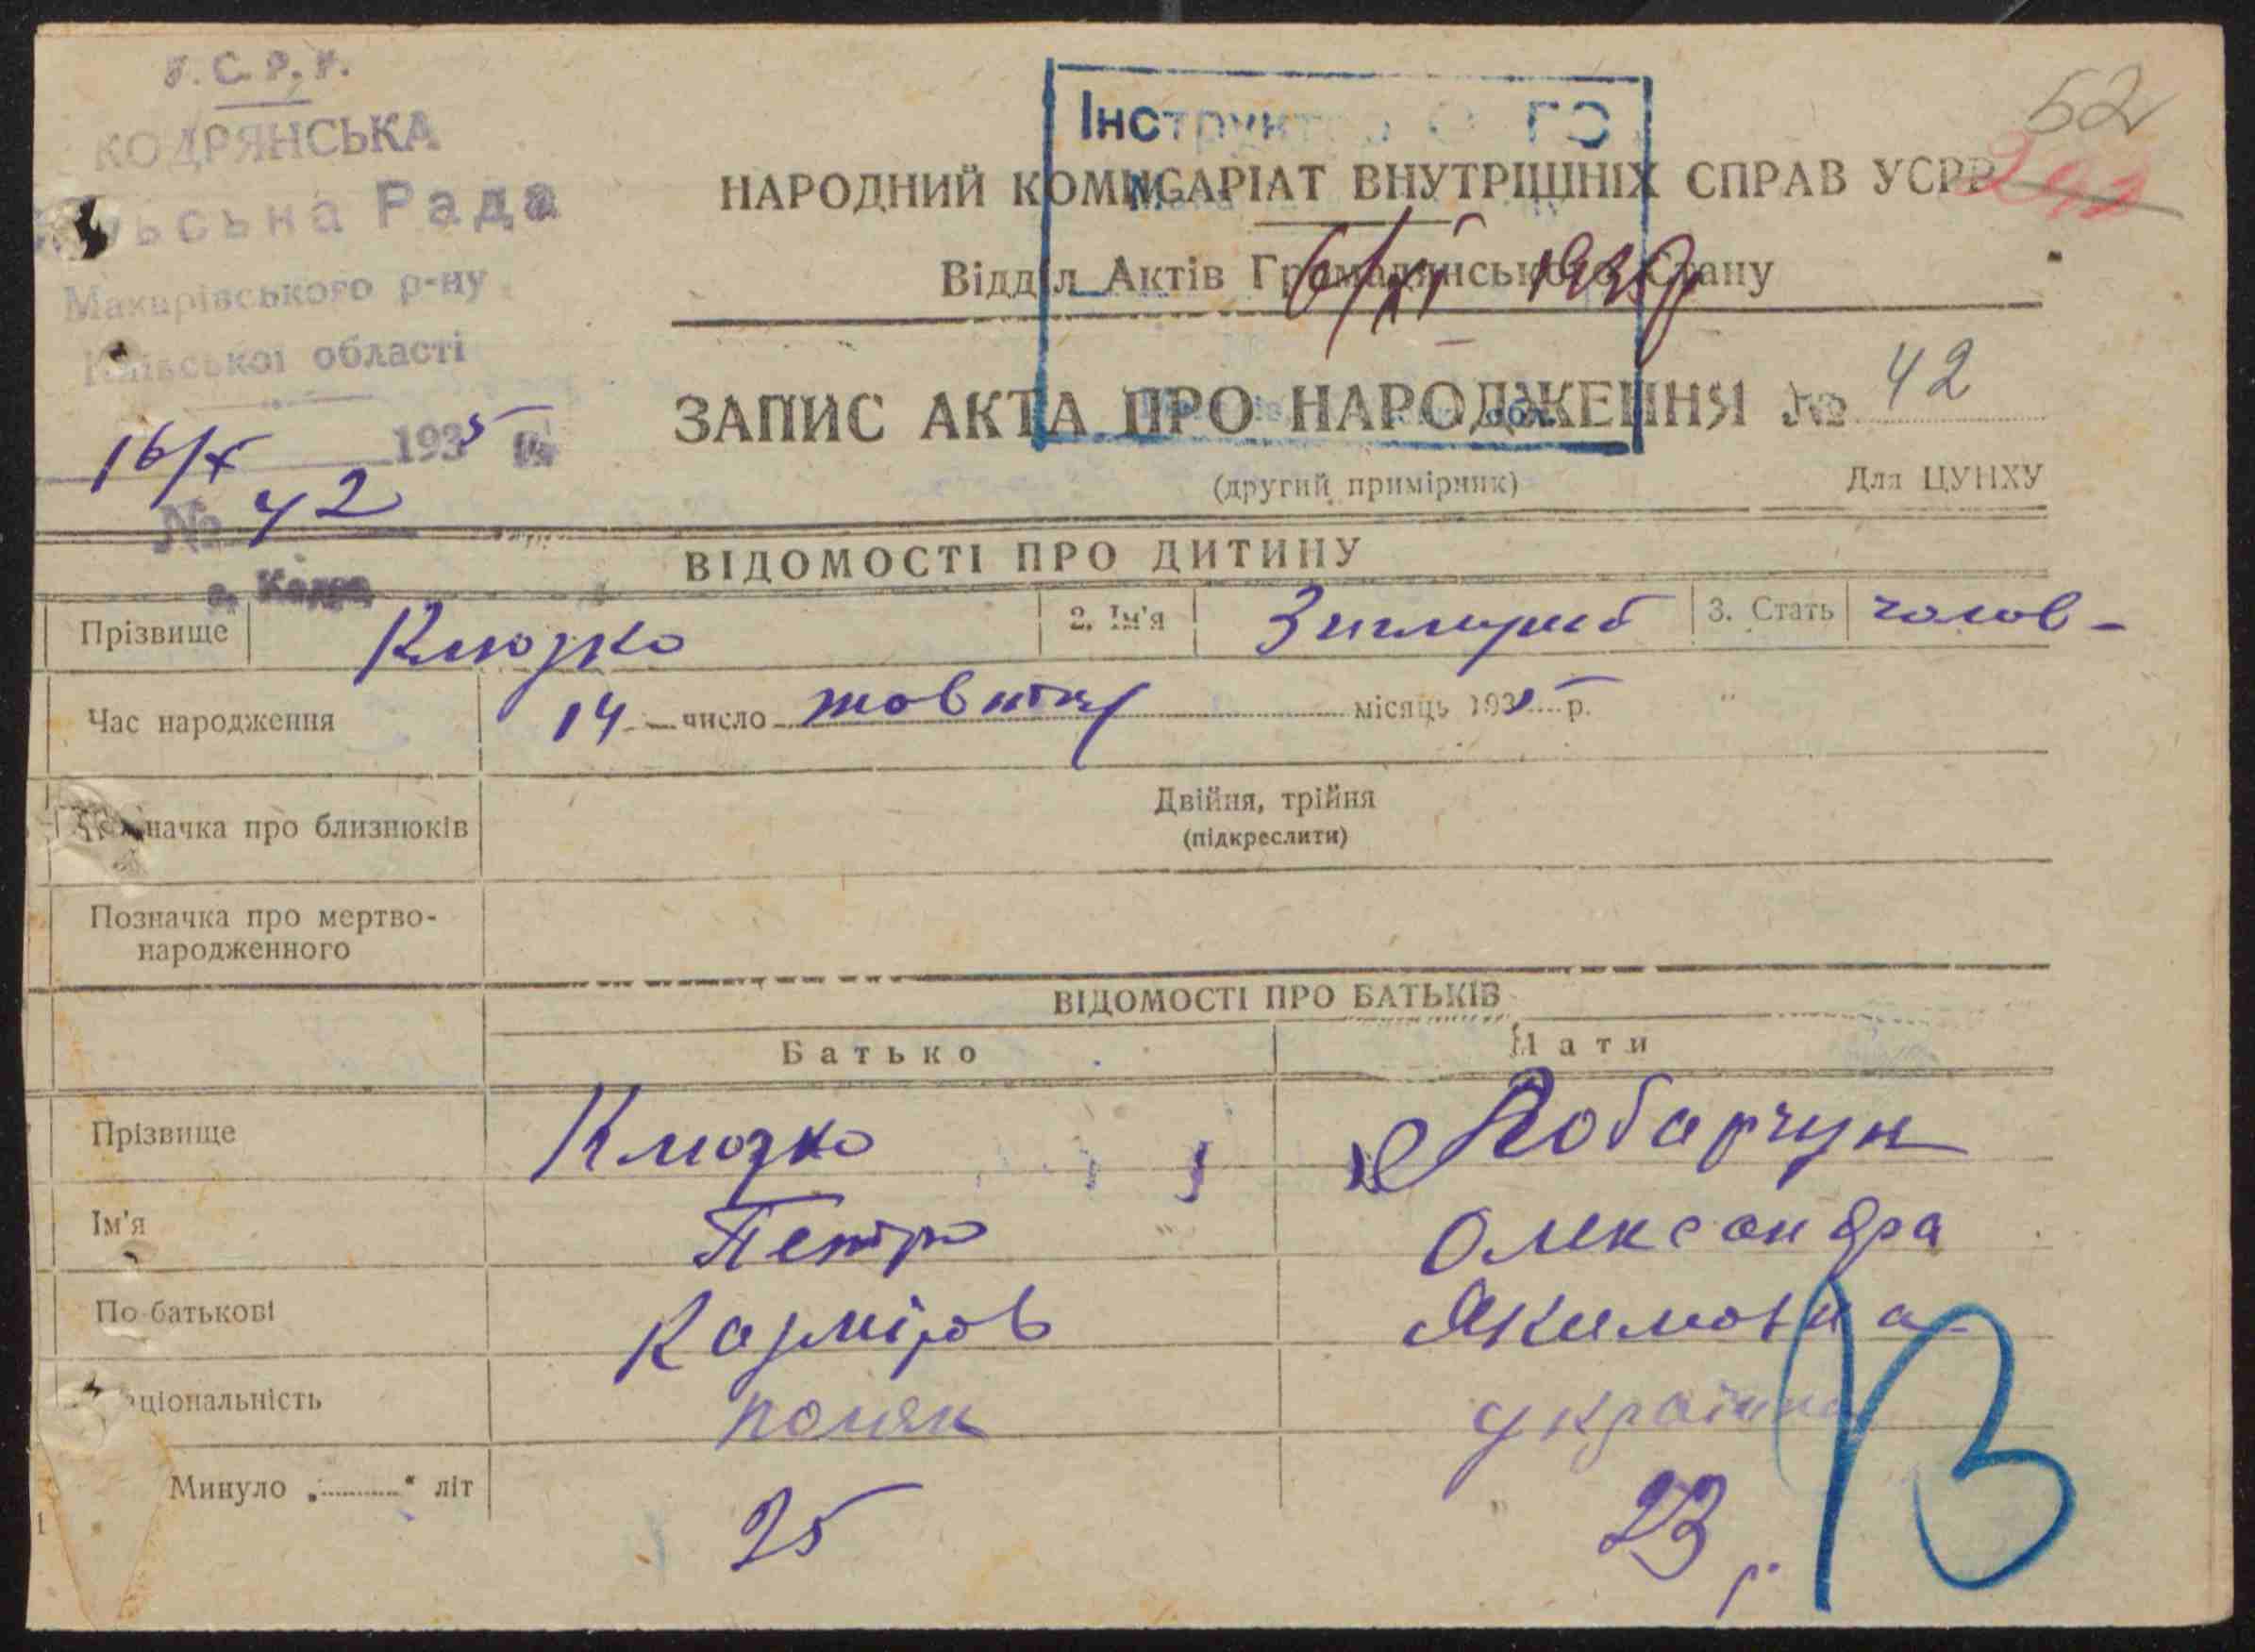 У.С.Р.Р.
КОДРЯНСЬКА
Сільська Рада
Макарівського р-ну
Київської області
16/X 1935 р.
№ 42
с. Кодра
52
292
Інструктор ГС
НАРОДНИЙ КОМІСАРІАТ ВНУТРІШНІХ СПРАВ УСРР
Відділ Актів Громадянського Стану
6/XI 1935
ЗАПИС АКТА ПРО НАРОДЖЕННЯ № 42
(другий примірник) Для ЦУНХУ
ВІДОМОСТІ ПРО ДИТИНУ
Прізвище Клюзко 2. Ім'я Зигмунд 3. Стать чолов-
Час народження 14 число жовтня місяць 1935 р.
Позначка про близнюків Двійня, трійня
(підкреслити)
Позначка про мертво-
народженного
ВІДОМОСТІ ПРО БАТЬКІВ
Батько Мати
Прізвище Клюзко Лобарчук
Ім'я Петро Олександра
По-батькові Казміров Якимовна
Національність поляк українка
Минуло „..........“ літ 25 23 р.
13